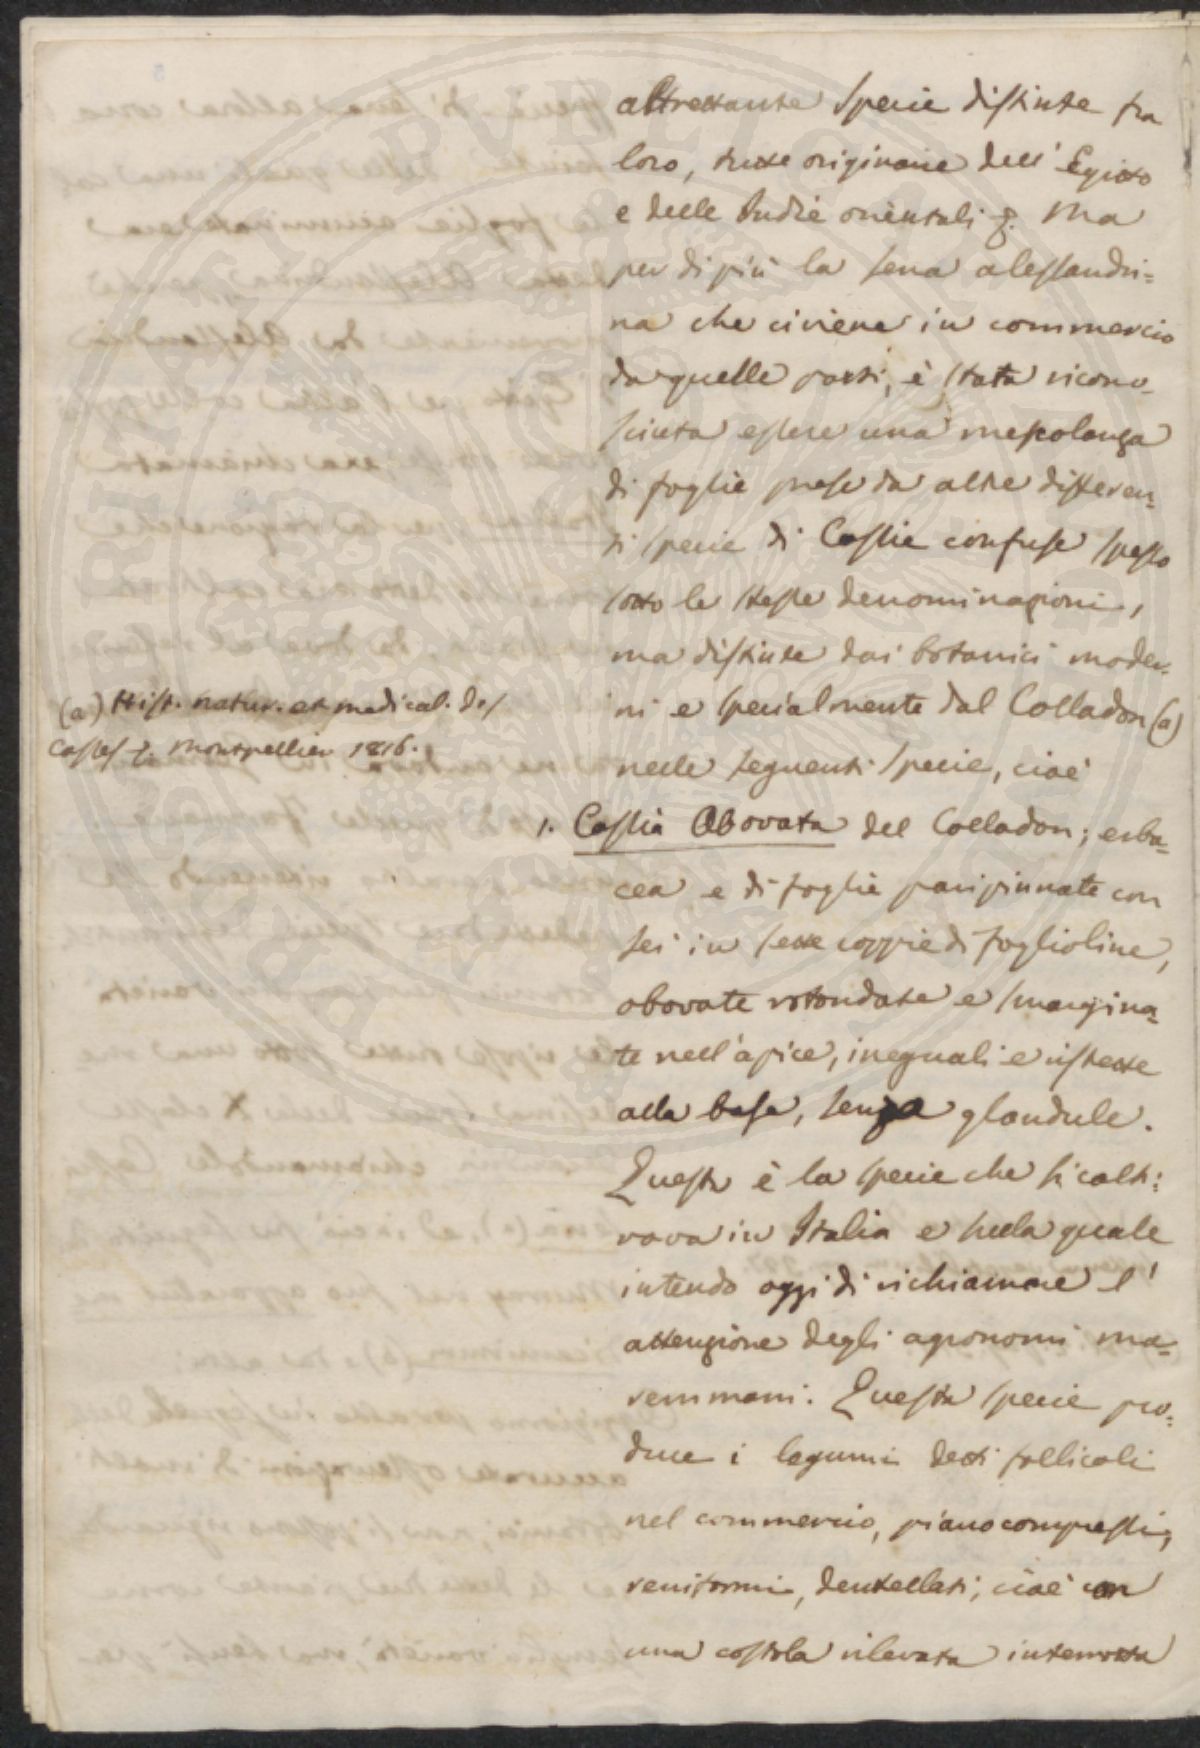 altrettante specie distinte fra
loro, tutte originarie dell'Egitto
e delle Indie orientali &. Ma
per di più la sena alessandri=
na che ci viene in commercio
da quelle parti, è stata ricono-
sciuta essere una mescolanza
di foglie prese da altre differen-
ti specie di Cassie confuse spesso
sotto le stesse denominazioni,
ma distinte dai botanici moder-
ni e specialmente dal Colladon (a)
nelle seguenti specie, cioè
(a) Hist. natur. et medical. des
Casses &. Montpellier 1816.
1. Cassia Obovata del Colladon; erba-
cea e di foglie paripinnate con
sei in sette coppie di foglioline,
obovate rotondate e smargina-
te nell'apice, ineguali e ristrette
alla base, senza glandule.
Questa è la specie che si colti=
vava in Italia e sulla quale
intendo oggi di richiamare l'
attenzione degli agronomi ma-
remmani. Questa specie pro-
duce i legumi detti follicoli
nel commercio, pianocompressi,
reniformi, dentellati, cioè con
una costola rilevata interrotta